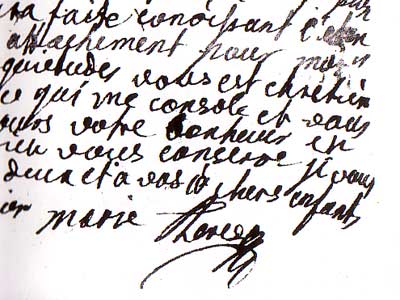 sa faite conoissant l'eten
attachement pour moy
quietudes vous est chretien
ce qui me console et vous
ours votre bonheur et
ieu vous conserve je vous
deux et a vos chers enfants
Marie Therese